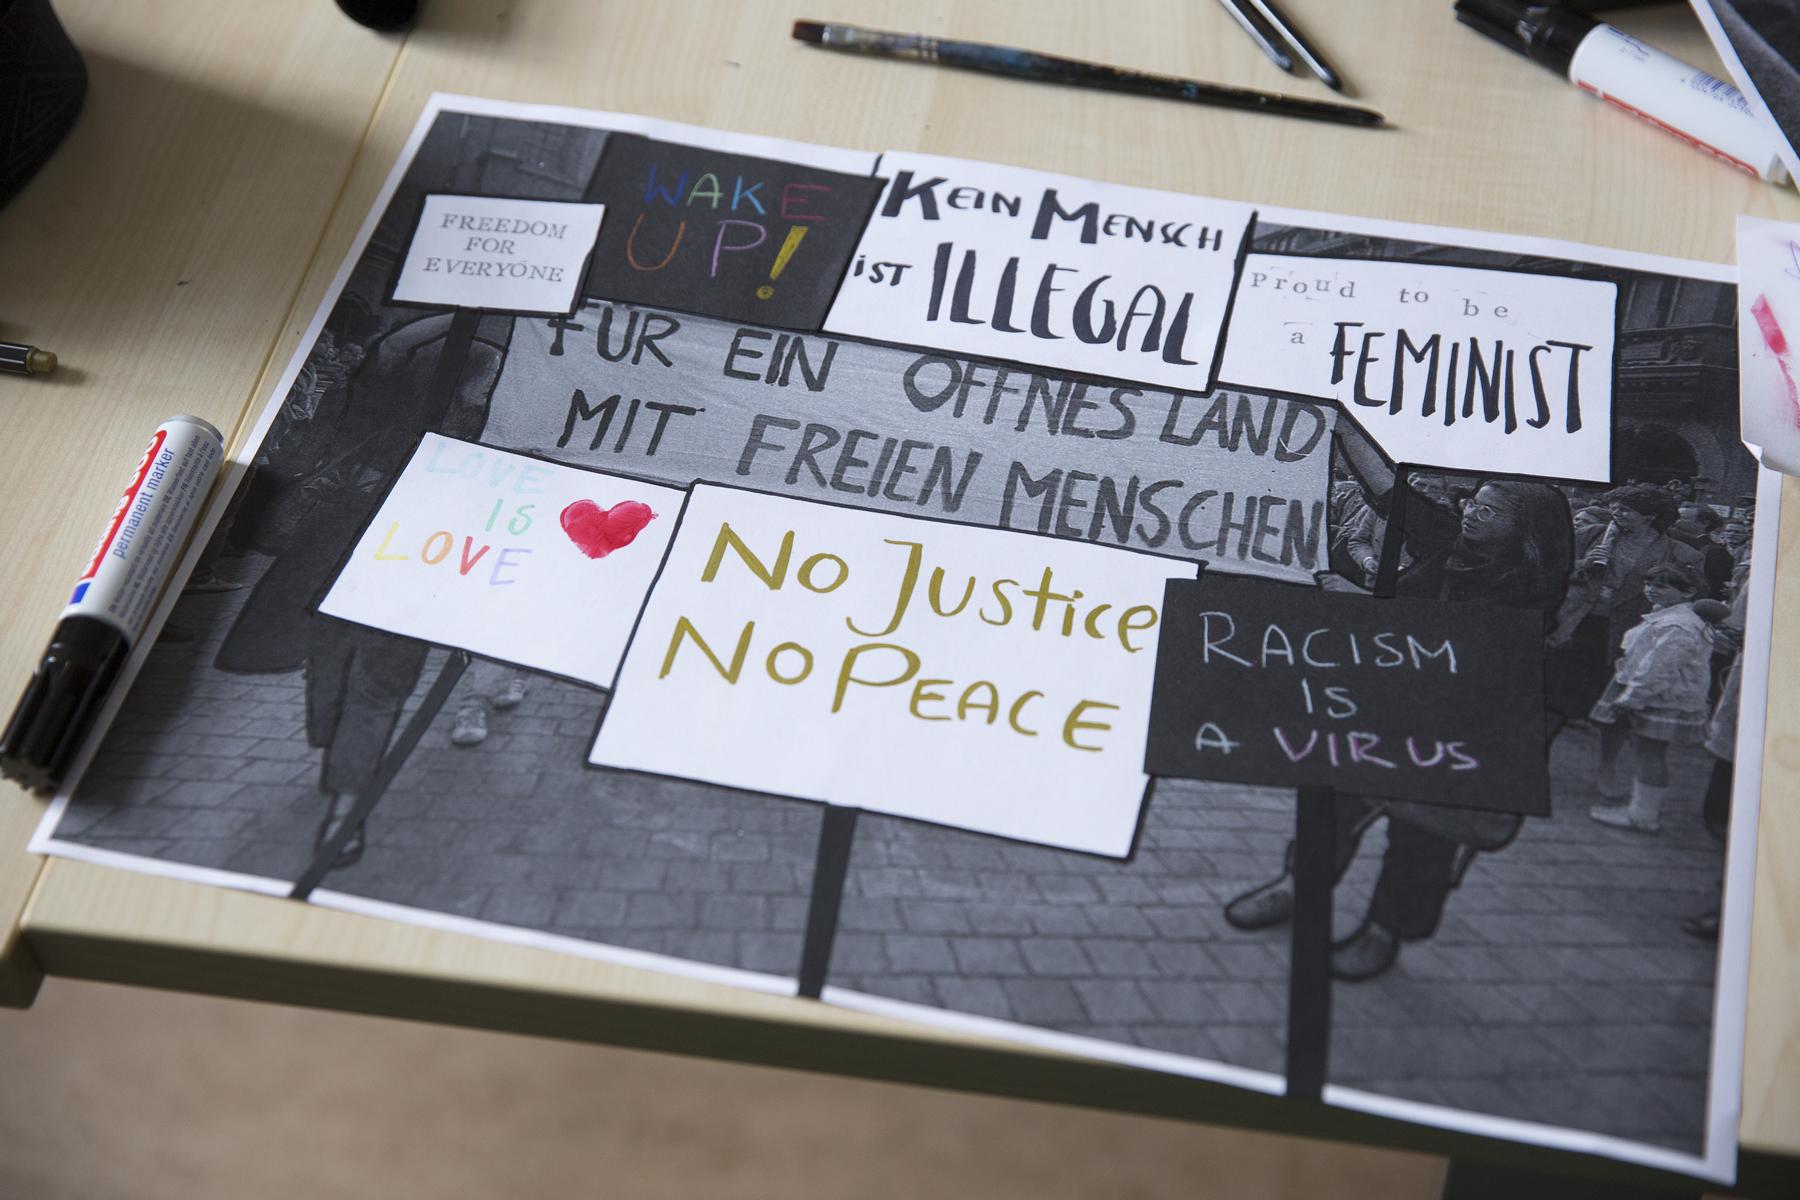 FREEDOM
FOR
EVERYONE
WAKE
UP!
KEIN MENSCH
iST ILLEGAL
Proud to be
a FEMINIST
FÜR EIN OFFNES LAND
MIT FREIEN MENSCHEN
LOVE
IS
LOVE
No Justice
No PEACE
RACISM
IS
A VIRUS
permanent marker